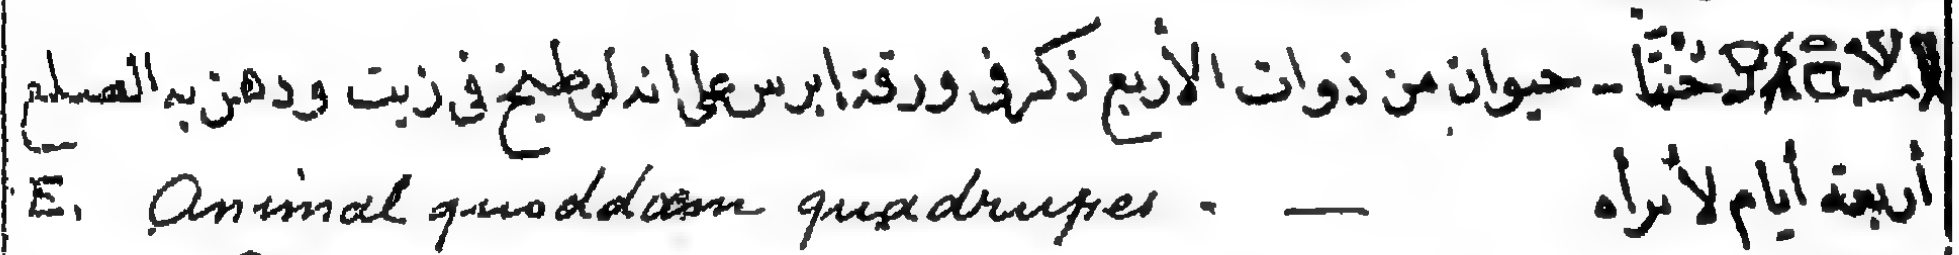 حيوان من ذوات الأربع ذكر فى ورقة ابرس على انه لو طبخ فى زيت ودهن به الصلع
أربعة أيام لأبرأه — . Animal quoddam quadrupes E.